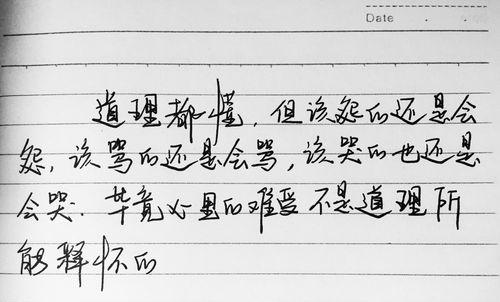 Date . .
道理都懂，但该怨的还是会
怨，该骂的还是会骂，该哭的也还是
会哭．毕竟心里的难受不是道理所
能释怀的